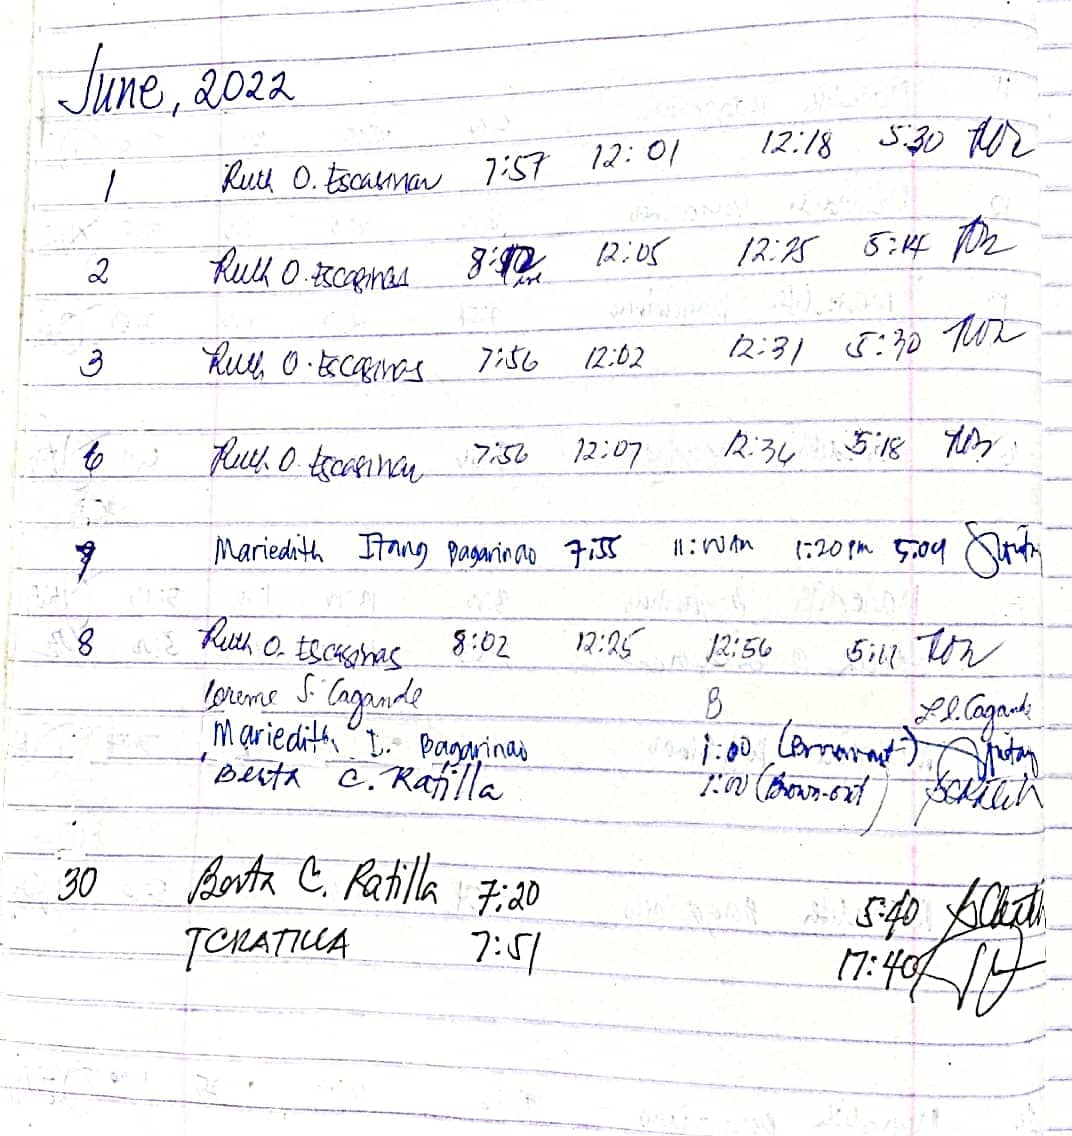 June, 2022
1 Ruth O. Escasinas 7:57 12:01 12:18 5:30
2 Ruth O. Escasinas 12:05 12:25 5:14
3 Ruth O. Escasinas 7:56 12:02 12:31 5:30
6 Ruth O. Escasinas 7:56 12:07 12:34 5:18
Mariedith Itang Bagarinao 7:55 11:00 Am 1:20 pm 5:09
8 Ruth O. Escasinas 8:02 12:25 12:56 5:11
S. Cagande L.S. Cagande
Mariedith I. Bagarinao 1:00 (Brownout)
Berta C. Ratilla 1:00 (Brown-out)
30 Berta C. Ratilla 7:20 5:40
TCRATILLA 7:51 17:40